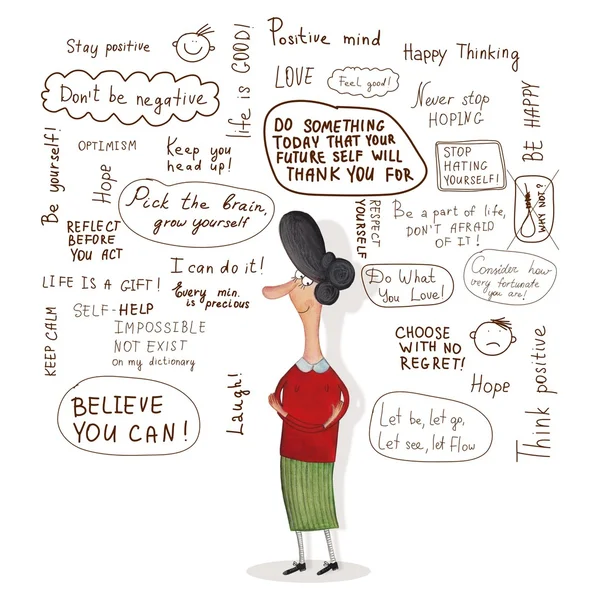 Stay positive
Don't be negative
life is GOOD!
Positive mind
LOVE
Feel good!
Happy Thinking
Never stop
HOPING
BE HAPPY
Be yourself!
OPTIMISM
Hope
Keep you
head up!
DO SOMETHING
TODAY THAT YOUR
FUTURE SELF WILL
THANK YOU FOR
STOP
HATING
YOURSELF!
WHY NOT?
Pick the brain,
grow yourself
REFLECT
BEFORE
YOU ACT
RESPECT
YOURSELF
Be a part of life,
DON'T AFRAID
OF IT!
I can do it!
Every min.
is precious
LIFE IS A GIFT!
Do What
You Love!
Consider how
very fortunate
you are!
KEEP CALM
SELF-HELP
IMPOSSIBLE
NOT EXIST
on my dictionary
CHOOSE
WITH NO
REGRET!
Hope
Think positive
BELIEVE
YOU CAN!
Laugh!
Let be, let go,
Let see, let flow